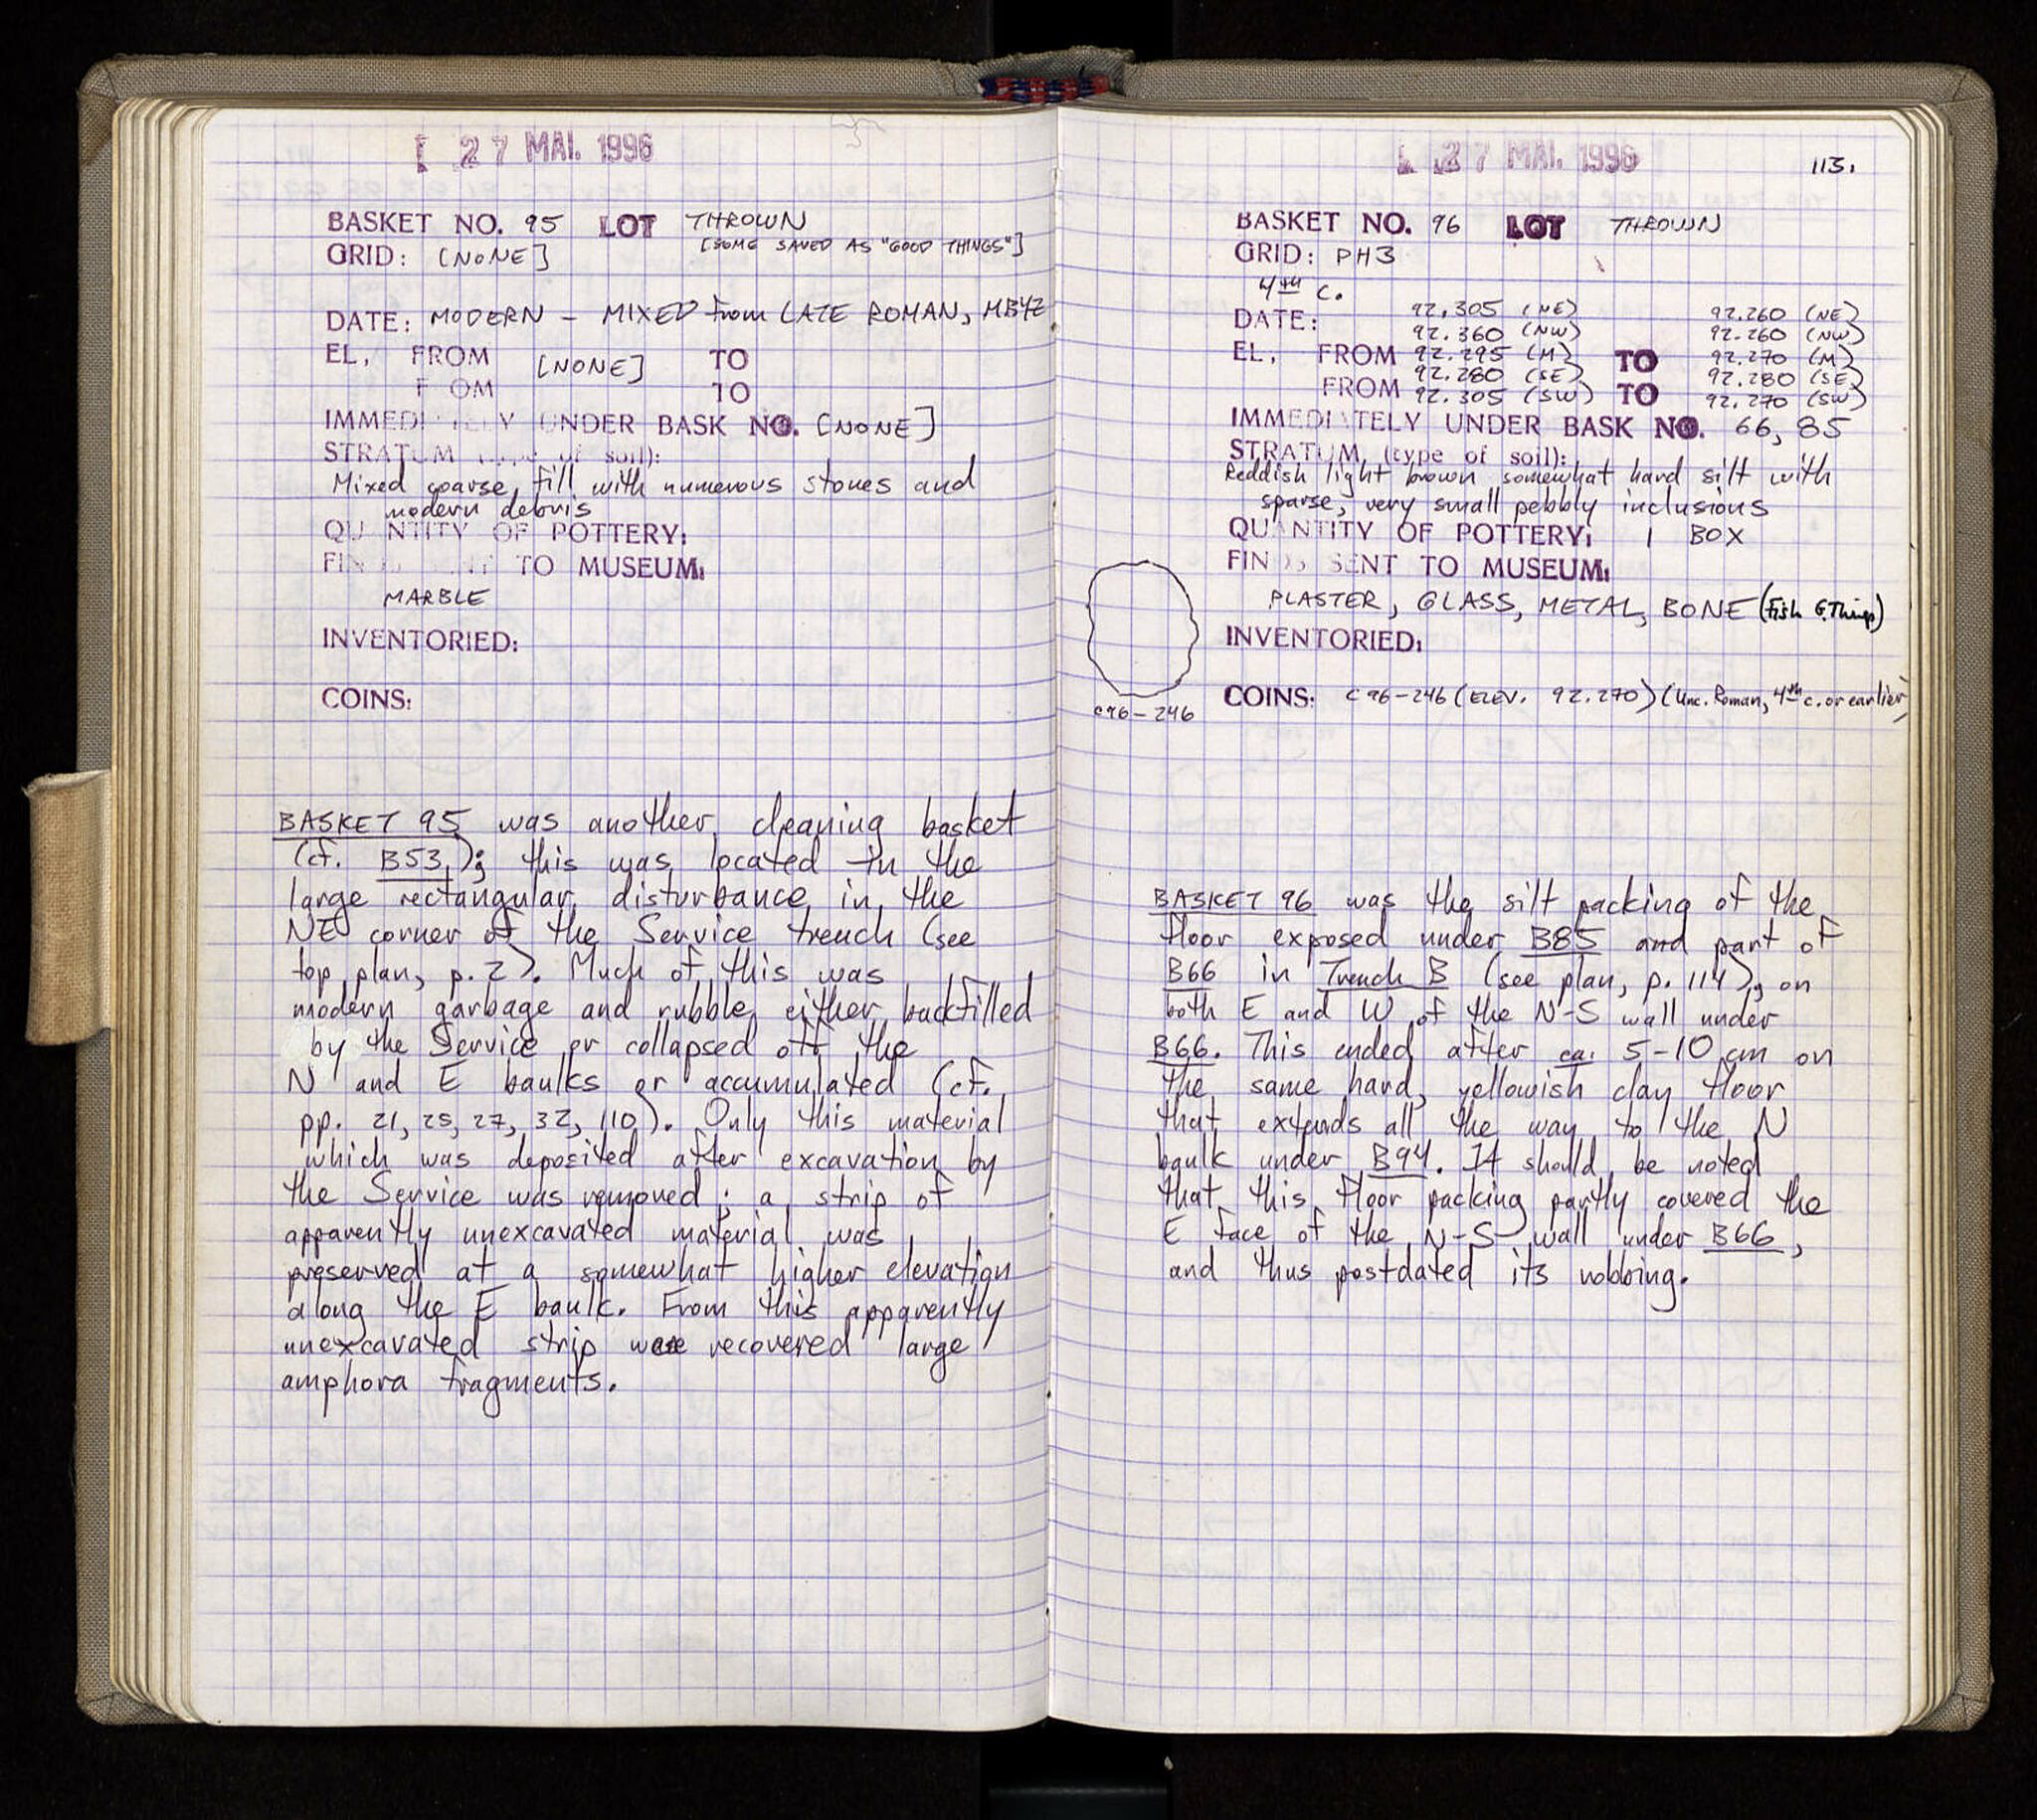 27 MAI. 1996
BASKET NO. 95 LOT THROWN
[SOME SAVED AS "GOOD THINGS"]
GRID: [NONE]
DATE: MODERN – MIXED from LATE ROMAN, MBYZ
EL, FROM [NONE] TO
F OM TO
IMMEDI ELY UNDER BASK NO. [NONE]
STRATUM (type of soil):
Mixed coarse fill with numerous stones and
modern debris
QU NTITY OF POTTERY:
FINDS SENT TO MUSEUM:
MARBLE
INVENTORIED:
COINS:
BASKET 95 was another cleaning basket
(cf. B53); this was located in the
large rectangular disturbance in the
NE corner of the Service trench (see
top plan, p. 2). Much of this was
modern garbage and rubble either backfilled
by the Service or collapsed off the
N and E baulks or accumulated (cf.
pp. 21, 25, 27, 32, 110). Only this material
which was deposited after excavation by
the Service was removed; a strip of
apparently unexcavated material was
preserved at a somewhat higher elevation
along the E baulk. From this apparently
unexcavated strip were recovered large
amphora fragments.
27 MAI. 1996
113.
BASKET NO. 96 LOT THROWN
GRID: PH3
4th c.
DATE:
92.305 (NE) 92.260 (NE)
92.360 (NW) 92.260 (NW)
EL, FROM 92.295 (M) TO 92.270 (M)
92.280 (SE) 92.280 (SE)
FROM 92.305 (SW) TO 92.270 (SW)
IMMEDIATELY UNDER BASK NO. 66, 85
STRATUM (type of soil):
Reddish light brown somewhat hard silt with
sparse, very small pebbly inclusions
QUANTITY OF POTTERY: 1 BOX
FINDS SENT TO MUSEUM:
PLASTER, GLASS, METAL, BONE (Fish G.Things)
INVENTORIED:
COINS: C96-246 (ELEV. 92.270) (Unc. Roman, 4th c. or earlier)
C96-246
BASKET 96 was the silt packing of the
floor exposed under B85 and part of
B66 in Trench B (see plan, p. 114), on
both E and W of the N-S wall under
B66. This ended after ca. 5-10 cm on
the same hard, yellowish clay floor
that extends all the way to the N
baulk under B94. It should be noted
that this floor packing partly covered the
E face of the N-S wall under B66,
and thus postdated its robbing.